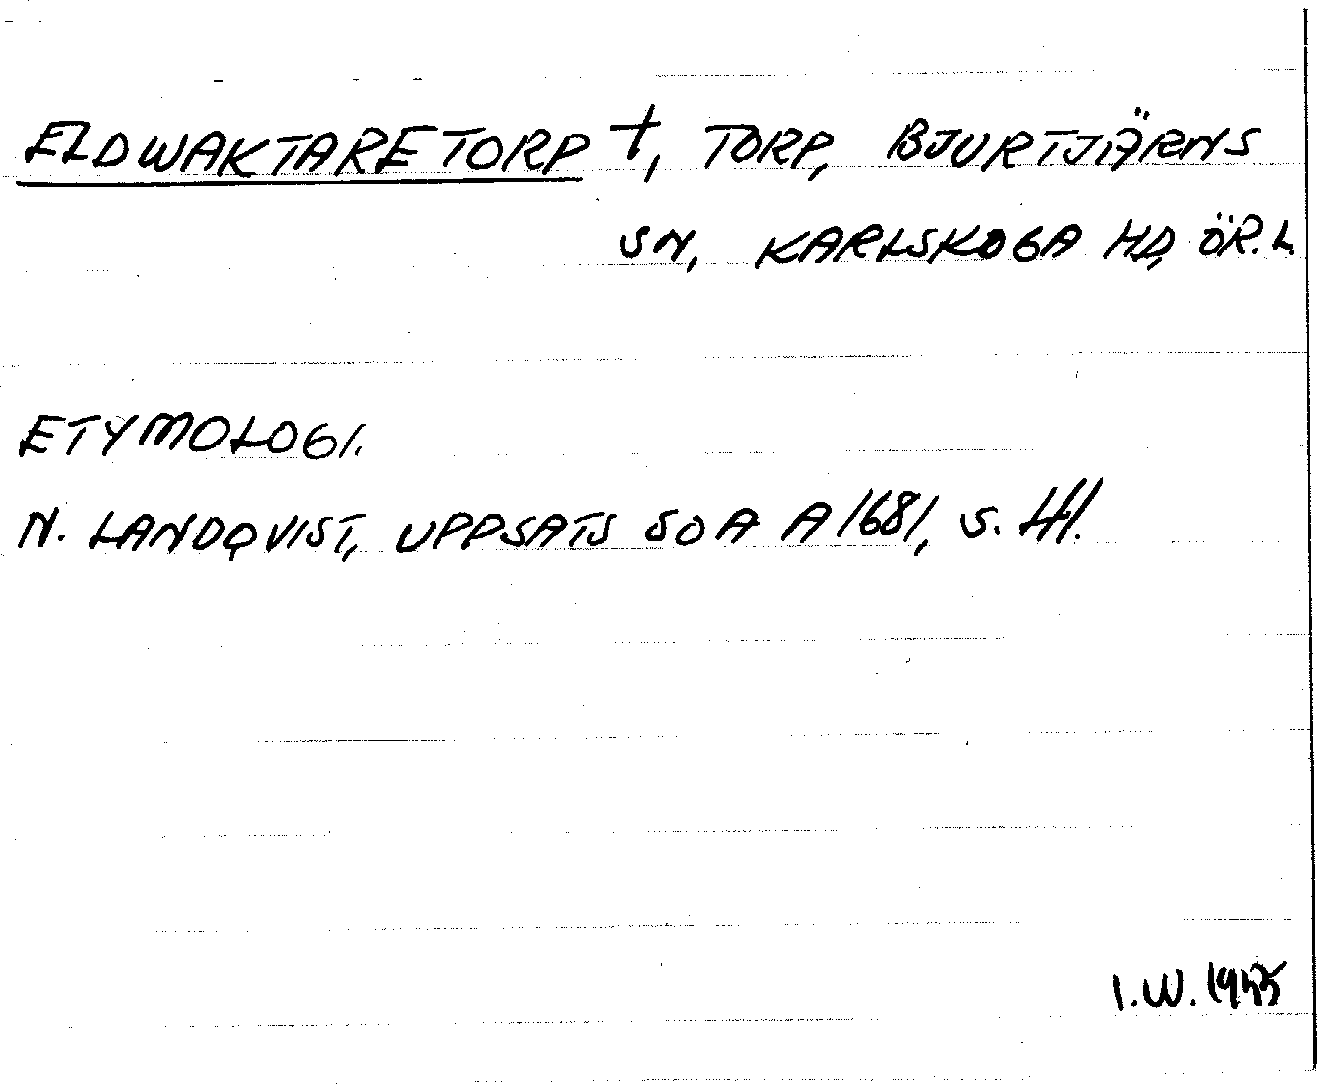 ELDWAKTARETORP †, TORP, BJURTJÄRNS
SN, KARLSKOGA HD, ÖR.L.
ETYMOLOGI.
N. LANDQVIST, UPPSATS SOA A 1681, S. 41.
I.W. 1955